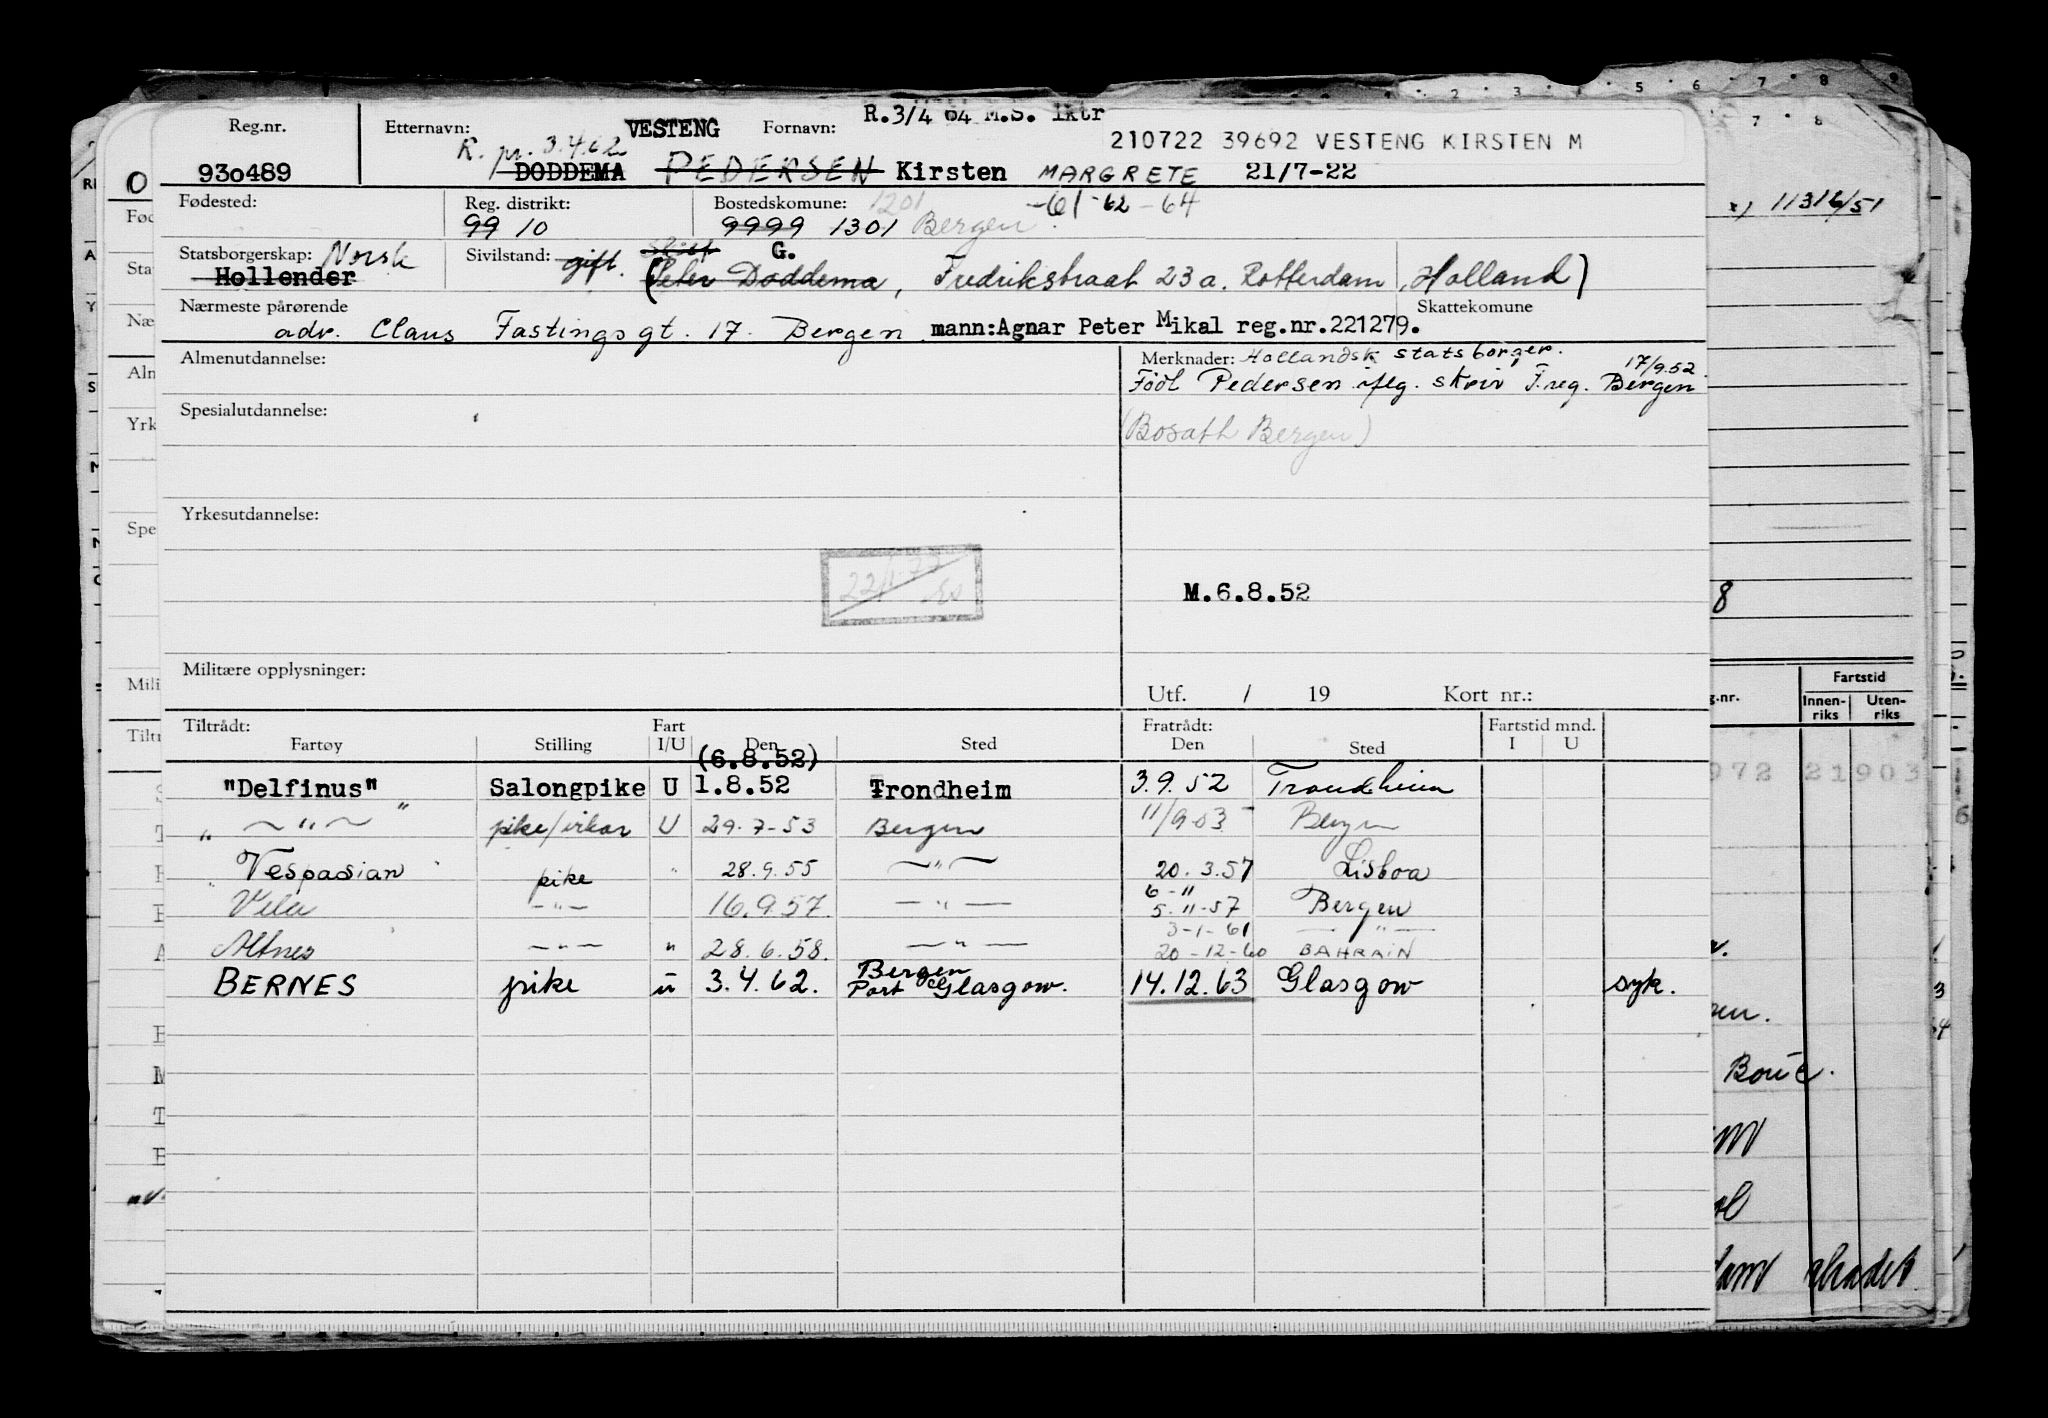 R.3/4 64 M.S. 1ktr
Reg.nr. Etternavn: VESTENG Fornavn: 210722 39692 VESTENG KIRSTEN M
R. pr. 3.4.62
930489 DODDEMA PEDERSEN Kirsten MARGRETE 21/7-22
Fødested: Reg. distrikt: Bostedskomune: 1201 -61-62-64
99 10 9999 1301 Bergen
Statsborgerskap: Norsk Sivilstand: gift. skilt G.
Hollender (Peter Doddema, Fredrikstraat 23a. Rotterdam, Holland)
Nærmeste pårørende Skattekomune
adr. Claus Fastingsgt. 17. Bergen mann:Agnar Peter Mikal reg.nr.221279.
Almenutdannelse: Merknader: Hollandsk statsborger.
Född Pedersen iflg. skriv F.reg. Bergen 17/9.52
Spesialutdannelse:
(Bosatt Bergen)
Yrkesutdannelse:
22/1.73
M.6.8.52
Militære opplysninger:
Utf. / 19 Kort nr.:
Tiltrådt: Fart Fratrådt: Fartstid mnd.
Fartøy Stilling I/U Den Sted Den Sted I U
(6.8.52)
"Delfinus" Salongpike U 1.8.52 Trondheim 3.9.52 Trondheim
" — " — " pike/vikar U 29.7-53 Bergen 11/9-53 Bergen
Vespasian pike " 28.9.55 — " — 20.3.57 Lisboa
6-11
Vela — " — 16.9.57. — " — 5.11-57 Bergen
3-1-61 — " —
Altnes — " — " 28.6.58. — " — 20-12-60 BAHRAIN
BERNES pike u 3.4.62. Bergen Port Glasgow. 14.12.63 Glasgow syk.
x) 11316/51
8
Fartstid
Innen-riks Uten-riks
972 21903
Boué.